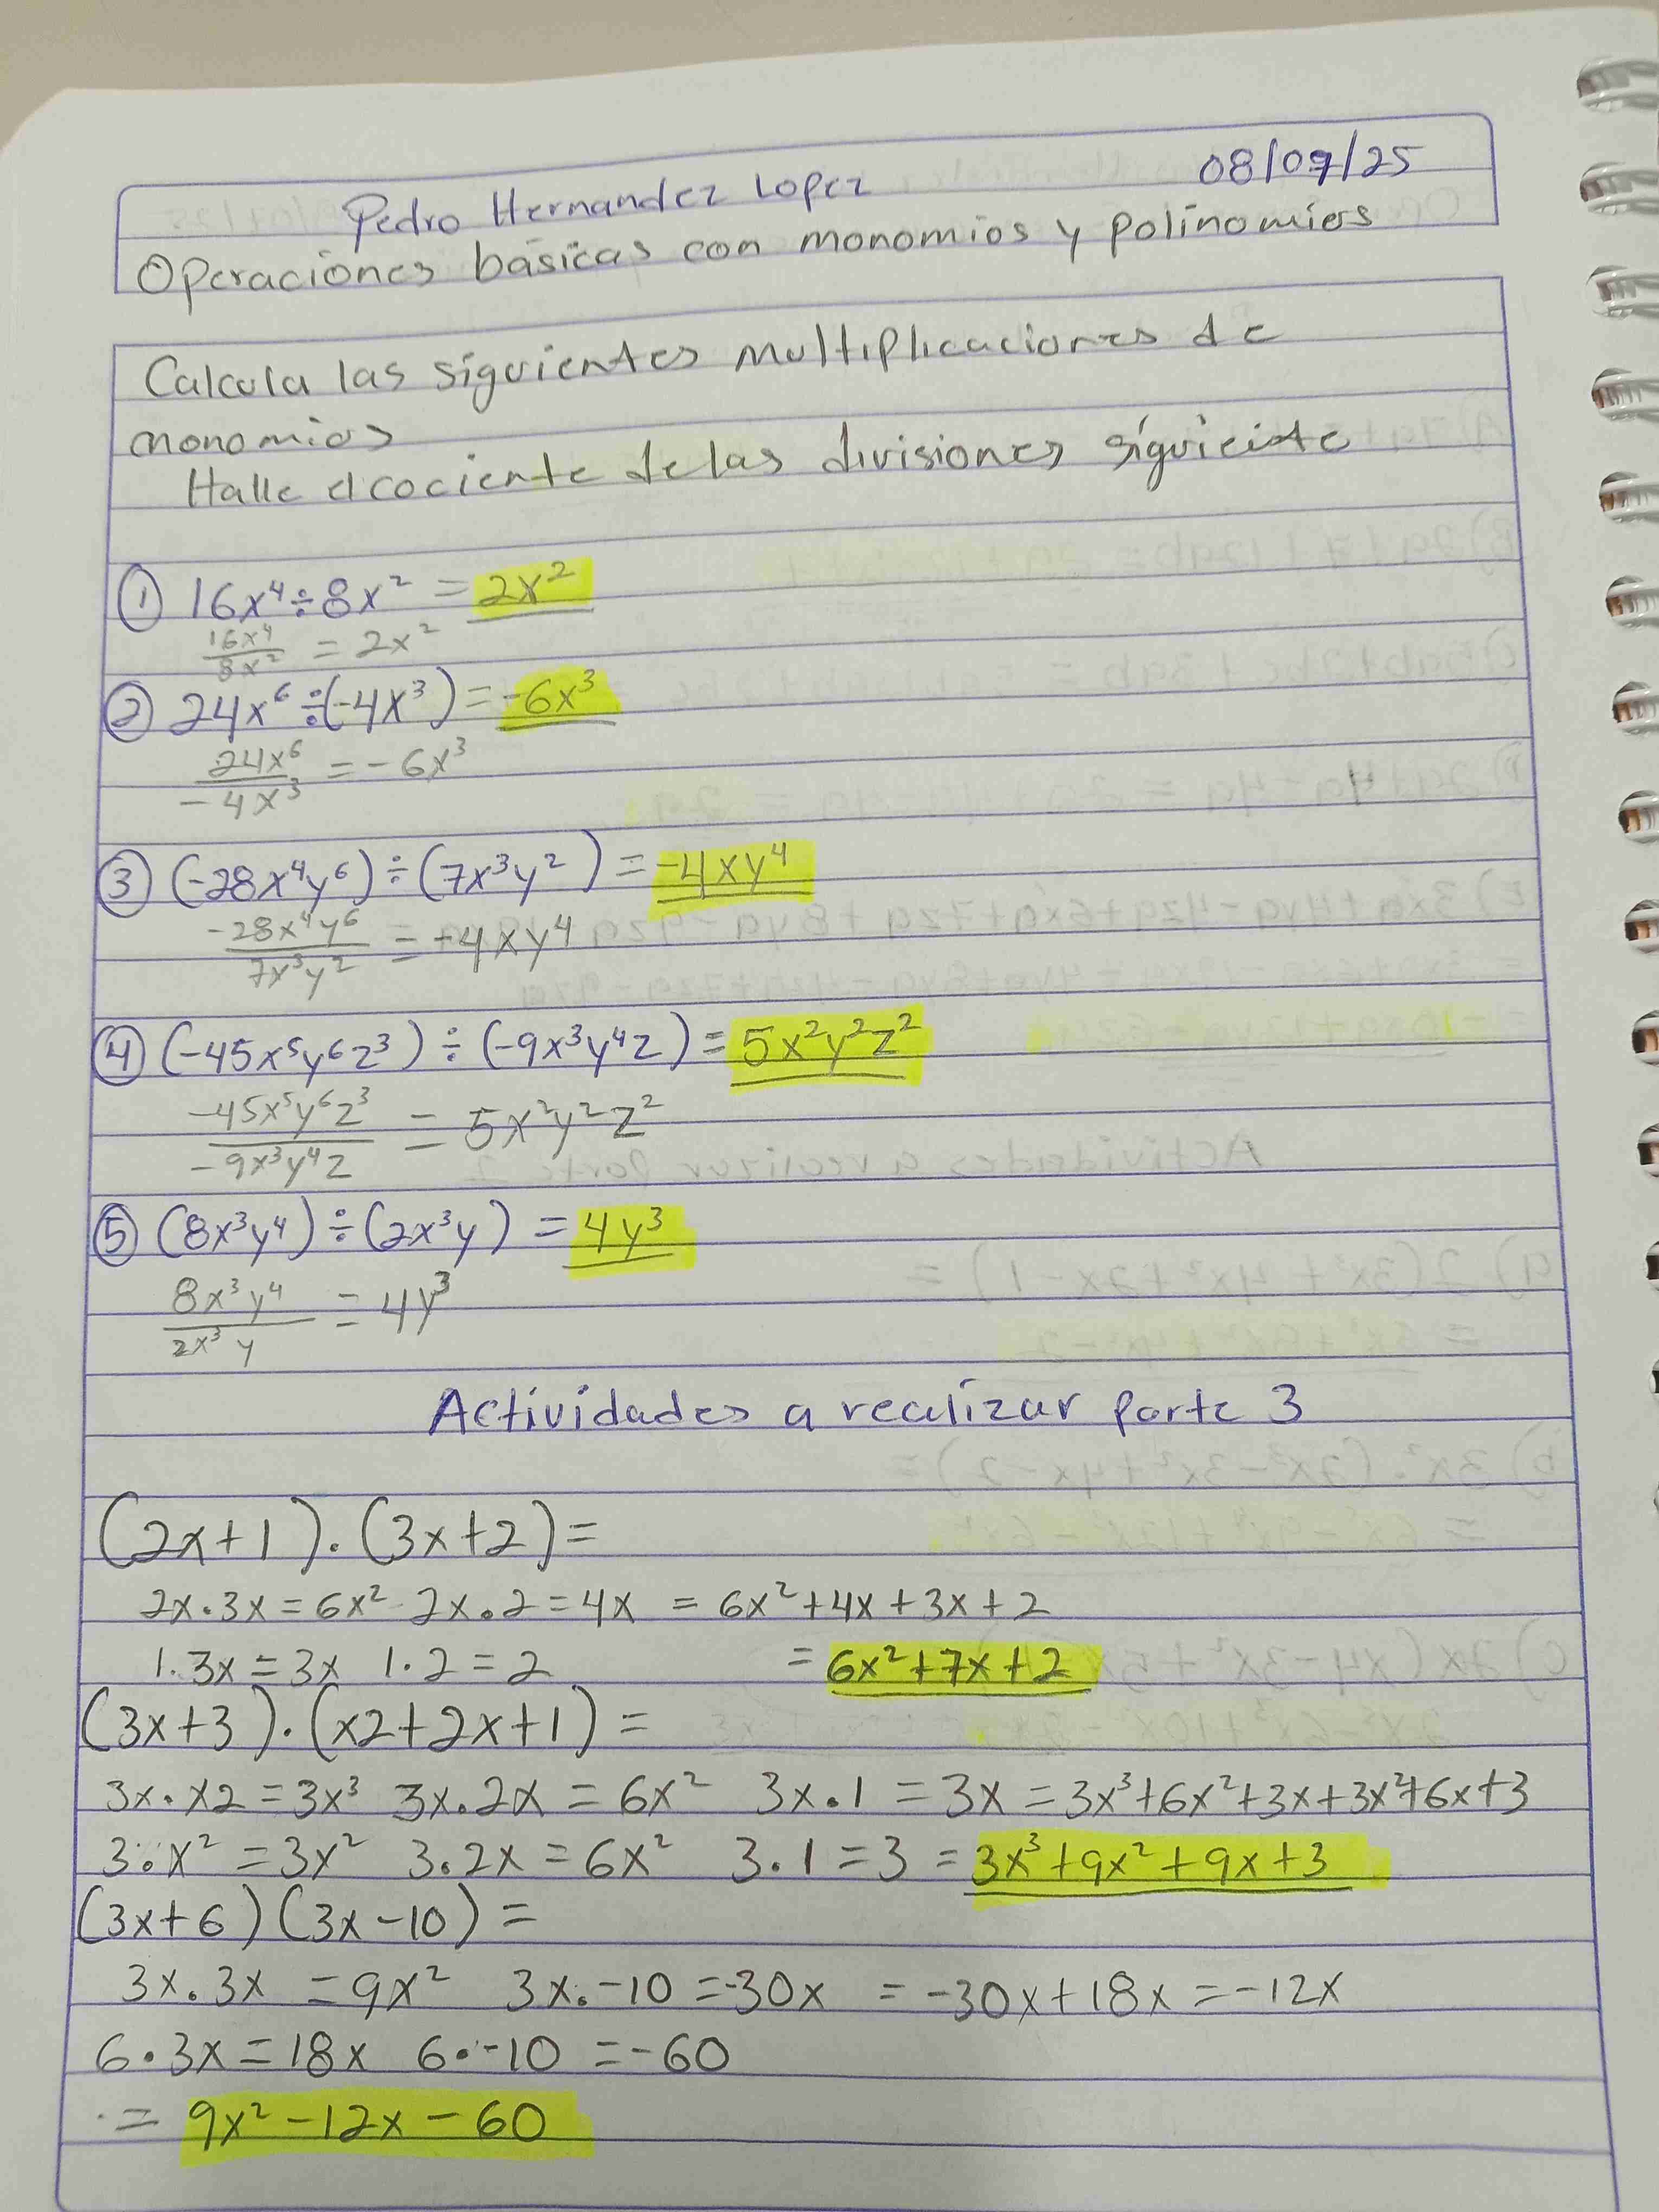 Pedro Hernandez Lopez 08/09/25
Operaciones básicas con monomios y polinomios
Calcula las siguientes multiplicaciones de
monomios
Halle el cociente de las divisiones siguiente
① 16x⁴÷8x² = 2x²
16x⁴/8x² = 2x²
② 24x⁶÷(-4x³) = -6x³
24x⁶/-4x³ = -6x³
③ (-28x⁴y⁶)÷(7x³y²) = -4xy⁴
-28x⁴y⁶/7x³y² = -4xy⁴
④ (-45x⁵y⁶z³) ÷ (-9x³y⁴z) = 5x²y²z²
-45x⁵y⁶z³/-9x³y⁴z = 5x²y²z²
⑤ (8x³y⁴)÷(2x³y) = 4y³
8x³y⁴/2x³y = 4y³
Actividades a realizar parte 3
(2x+1).(3x+2)=
2x.3x=6x² 2x.2=4x = 6x²+4x+3x+2
1.3x=3x 1.2=2 = 6x²+7x+2
(3x+3).(x2+2x+1)=
3x.x2=3x³ 3x.2x=6x² 3x.1=3x=3x³+6x²+3x+3x²+6x+3
3.x²=3x² 3.2x=6x² 3.1=3 =3x³+9x²+9x+3
(3x+6)(3x-10)=
3x.3x=9x² 3x.-10=-30x = -30x+18x=-12x
6.3x=18x 6.-10=-60
= 9x²-12x-60